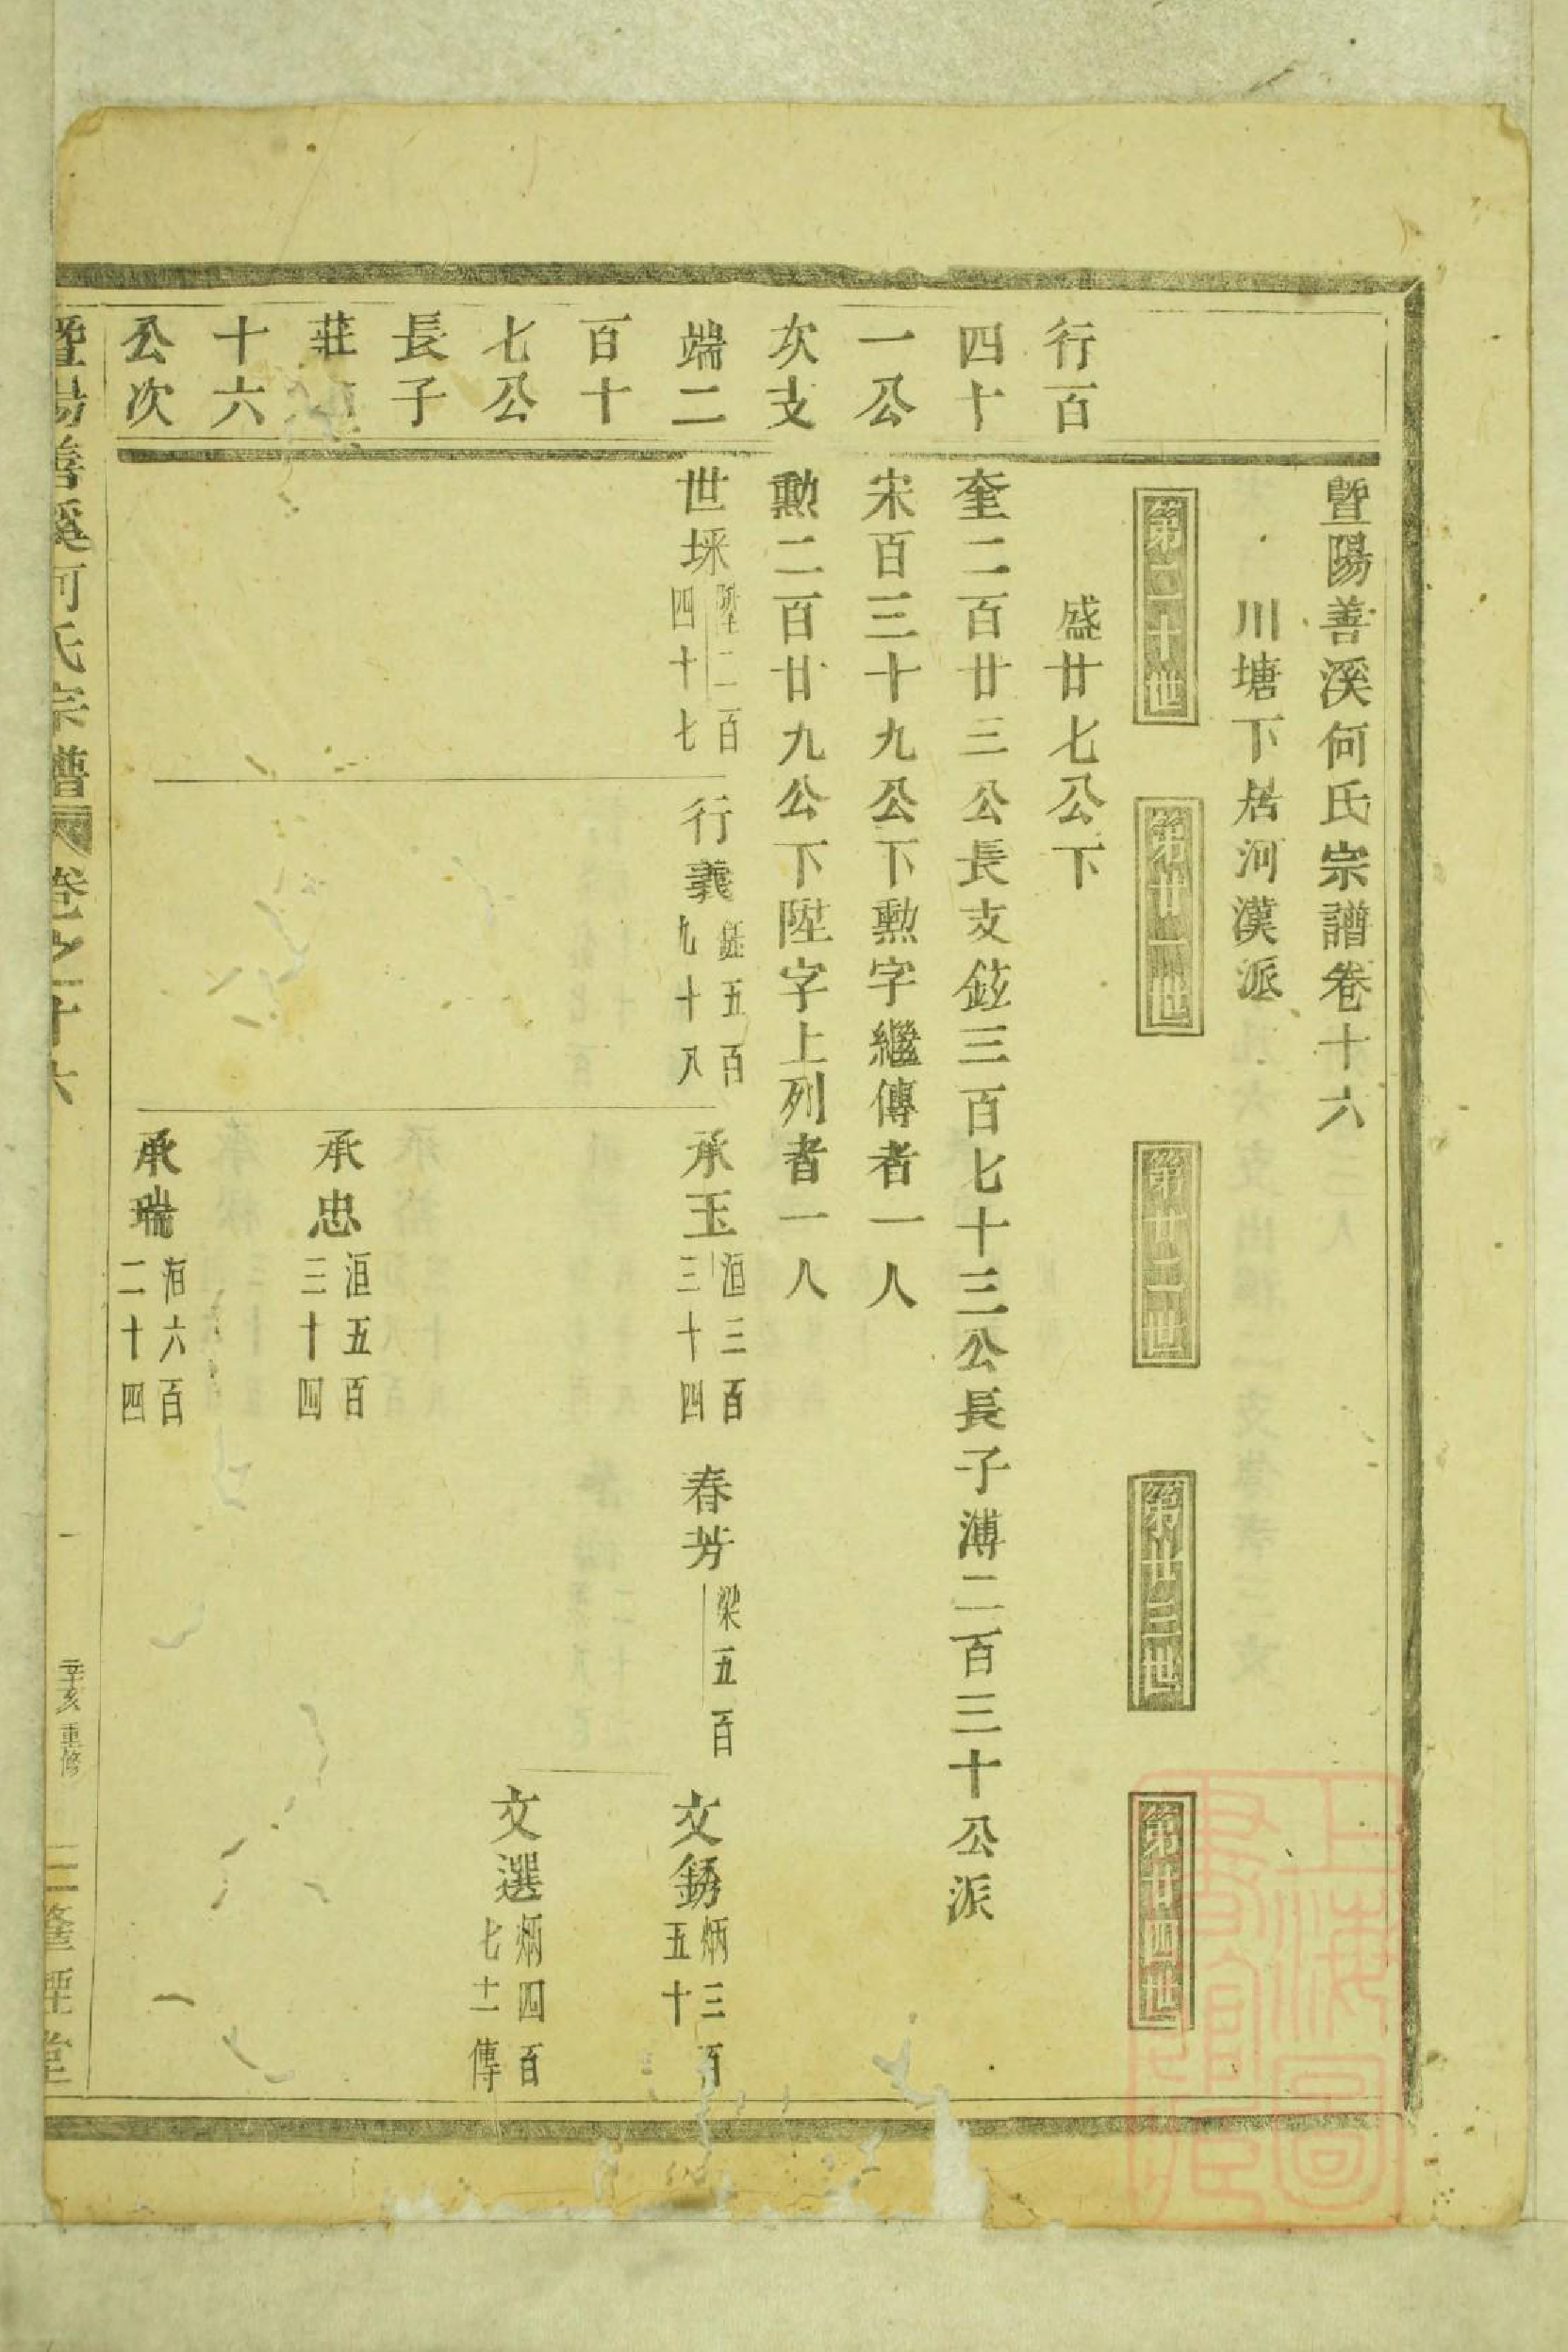 暨陽善溪何氏宗譜卷十六
川塘下居河漢派
第二十世
第廿一世
第廿二世
第廿三世
第廿四世
行百
四十
一公
次支
端二
百十
七公
長子
莊
十六
公次
盛廿七公下
奎二百廿三公長支鉉三百七十三公長子溥二百三十公派
宋百三十九公下勲字繼傳者一人
勲二百廿九公下陞字上列者一人
世埰 陞二百四十七
行義 五百九十八
承玉 洹三百三十四
春芳 梁五百
文銹 炳三百五十
文選 炳四百七十一傳
承忠 洹五百三十四
承瑞 洹六百二十四
暨陽善溪何氏宗譜 卷之十六 一 辛亥重修 三隆堂
上海圖書館